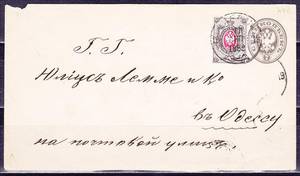 Г. Г.
Юліусъ Лемме и Ко
въ Одессу
на почтовой улицѣ